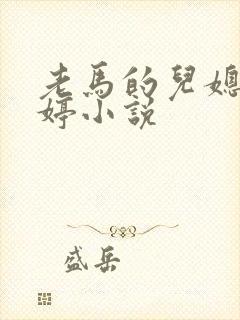 老馬的兒媳
婷小説
盛岳